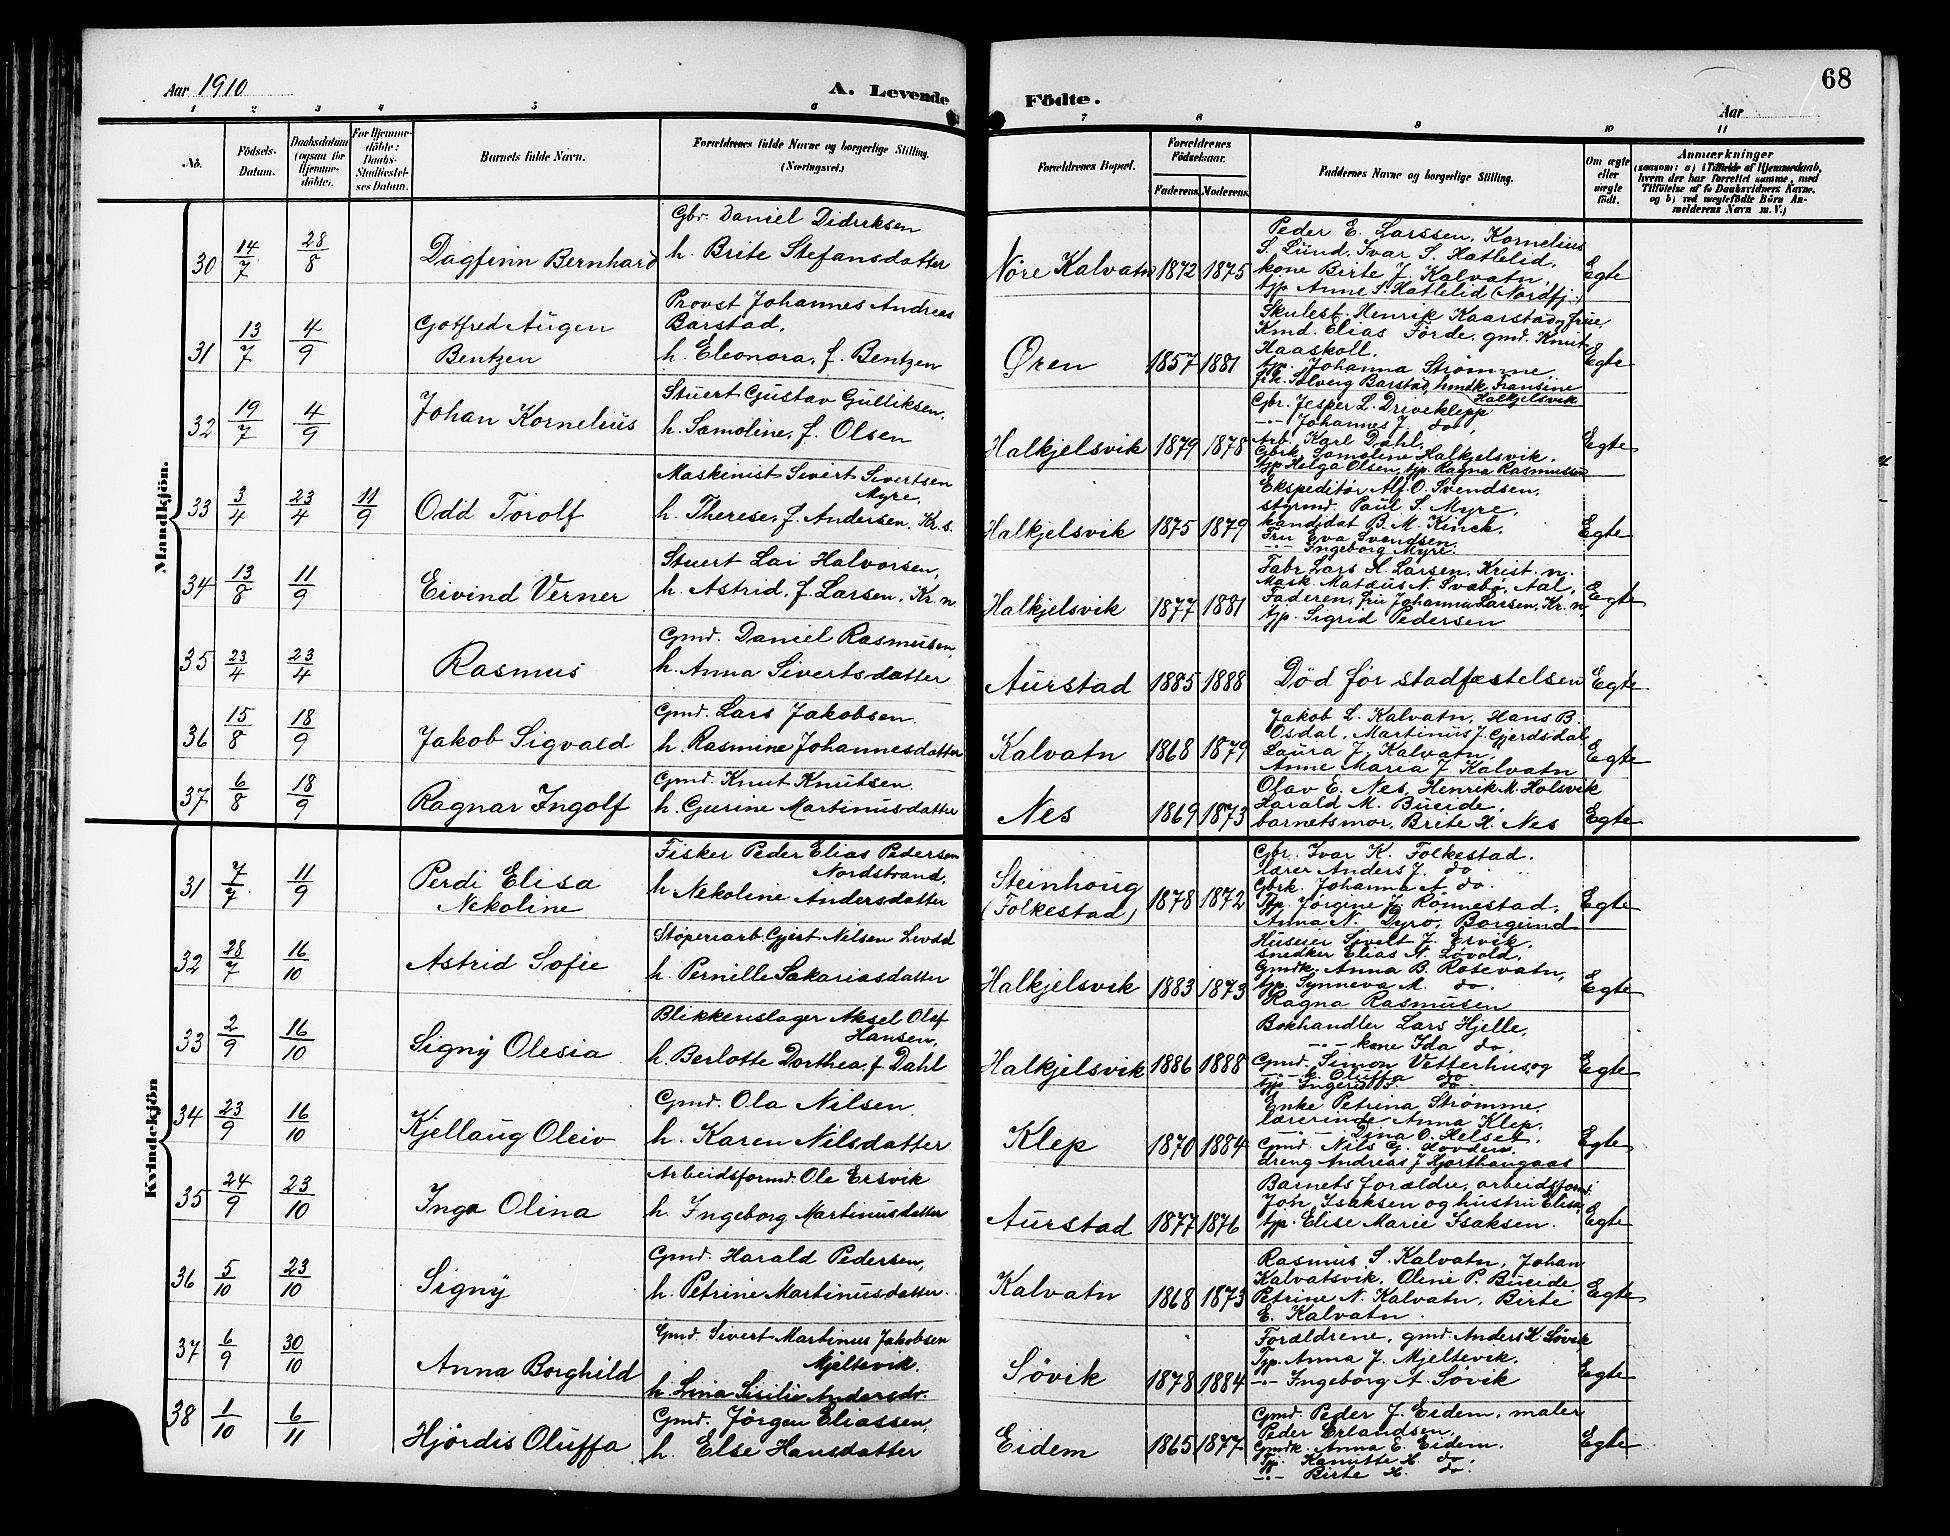 68
Aar 1910
A. Levende Födte.
Aar
1 2 3 4 5 6 7 8 9 10 11
Nö.
Födsels-Datum.
Daabsdatum (ogsaa for Hjemme-döbte).
For Hjemme-döbte: Daabs-Stadfæstel-ses Datum.
Barnets fulde Navn.
Forældrenes fulde Navne og borgerlige Stilling. (Næringsvei.)
Forældrenes Bopæl.
Forældrenes Födselsaar.
Faderens. Moderens.
Faddernes Navne og borgerlige Stilling.
Om ægte eller uægte født.
Anmærkninger
(saasom: a) i Tilfælde af Hjemmedaab, hvem der har forrettet samme, med Tilföielse af to Daabsvidners Navne, og b) ved uægtefödte Börn An-melderens Navn m. V.)
Mandkjön.
30 14/7 28/8 Dagfinn Bernhard
Gbr. Daniel Didriksen
h. Brite Stefansdatter
Nore Kalvatn 1872 1875
Peder E. Larssen, Kornelius
S. Lund, Ivar S. Hatlelid,
kone Birte J. Kalvatn,
tjp Anne S. Hatlelid (Nordfj.)
Egte
31 13/7 4/9 Gotfred Augen
Bentzen
Provst Johannes Andreas
Barstad,
h. Eleonora, f. Bentzen
Øren 1857 1881
Skulest. Henrik Kaarstad og frue,
Kmd. Elias Förde, gmd. Knut
Haaskoll.
tjp. Johanna Strømme,
frk. Solveig Barstad, hmdk Fransine
Halkjelsvik
Egte
32 19/7 4/9 Johan Kornelius
Stuert Gustav Gulliksen,
h. Samoline, f. Olsen
Halkjelsvik 1879 1878
Gbr. Jesper L. Driveklepp
-"- Johannes J. do,
Arb. Karl Dahl,
Gbrk. Samoline Halkjelsvik,
tjp Helga Olsen, tjp. Ragna Rasmussen
Egte
33 3/4 23/4 11/9 Odd Torolf
Maskinist Sivert Sivertsen
Myre,
h. Therese, f. Andersen, Kr. s.
Halkjelsvik 1875 1879
Ekspeditör Alf O. Svendsen,
styrmd. Paul S. Myre,
kandidat B. M. Kinck.
Fru Eva Svendsen,
-"- Ingeborg Myre.
Egte
34 13/8 11/9 Eivind Verner
Stuert Lai Halvorsen,
h. Astrid, f. Larsen, Kr. n.
Halkjelsvik 1877 1881
Fabr. Lars H. Larsen, Krist. n.
Mask. Matæus N. Svabø, Aal,
Faderen, fru Johanna Larsen, Kr. n,
tjp. Sigrid Pedersen
Egte
35 23/4 23/4 Rasmus
Gmd. Daniel Rasmusen,
h. Anna Sivertsdatter
Aurstad 1885 1888
Död för stadfæstelsen
Egte
36 15/8 18/9 Jakob Sigvald
Gmd. Lars Jakobsen
h. Rasmine Johannesdatter
Kalvatn 1868 1879
Jakob L. Kalvatn, Hans B.
Osdal, Martinus J. Gjerdsdal
Laura J. Kalvatn,
Anne Maria J. Kalvatn
Egte
37 6/8 18/9 Ragnar Ingolf
Gmd. Knut Knutsen
h. Gurine Martinusdatter
Nes 1869 1873
Olav E. Nes, Henrik M. Holsvik
Harald M. Bueide,
barnetsmor, Brite H. Nes
Egte
Kvindekjön
31 7/7 11/9 Perdi Elisa
Nekoline
Fisker Peder Elias Pedersen
Nordstrand,
h Nekoline Andersdatter
Steinhoug
(Folkestad) 1878 1872
Gbr. Ivar K. Folkestad.
lærer Anders J. do
Gbrk. Johanna A do.
Tjp. Jörgine J. Rönnestad,
Anna N. Dyrö, Borgund
Egte
32 28/7 16/10 Astrid Sofie
Støperiarb. Gjert Nilsen Levold
h. Pernille Sakariasdatter
Halkjelsvik 1883 1873
Huseier Sivelt J. Ervik,
snedker Elias N. Løvold,
Gmdk. Anna B. Rotevatn,
tjp. Synneva A. do.
Ragna Rasmusen
Egte
33 2/9 16/10 Signy Olesia
Blikkenslager Aksel Olaf
Hansen,
h. Berlotte Dorthea, f. Dahl
Halkjelsvik 1886 1888
Bokhandler Lars Hjelle,
-"- kone Ida do,
Gmd. Simon Vetterhus og
-"- k. Oluffa do
tjp. Ingerid S. do.
Egte
34 23/9 16/10 Kjellaug Oleiv
Gmd. Ola Nilsen
h. Karen Nilsdatter
Klep 1870 1884
Enke Petrina Strømme,
lærerinde Anna Klep,
-"- Dina O. Helset,
Gmd. Nils G. Hovden,
dreng Andreas J Hjorthaugaas
Egte
35 24/9 23/10 Inga Olina
Arbeidsformd. Ole Ersvik
h. Ingeborg Martinusdatter
Aurstad 1877 1876
Barnets forældre, arbeidsformd.
Joh. Isaksen og hustru Elisa,
tjp. Elise Marie Isaksen.
Egte
36 5/10 23/10 Signy
Gmd. Harald Pedersen,
h. Petrine Martinusdatter.
Kalvatn 1868 1873
Rasmus S. Kalvatn, Johan
Kalvatsvik, Oline P. Bueide
Petrine N. Kalvatn, Birte
E. Kalvatn.
Egte
37 6/9 30/10 Anna Borghild
Gmd. Sivert Martinus Jakobsen
Mjeltevik,
h. Lina Sisilie Andersdr.
Sövik 1878 1884
Forældrene, gmd. Anders K. Søvik
Tjp. Anna J. Mjeltevik,
-"- Ingeborg A. Søvik
Egte
38 1/10 6/11 Hjördis Oluffa
Gmd. Jörgen Eliassen,
h. Else Hansdatter
Eidem 1865 1877
Gmd. Peder J. Eidem, maler
Peder Erlandsen,
Gmdk. Anna E. Eidem.
Tjp. Kanutte H. do,
-"- Birte H. do.
Egte